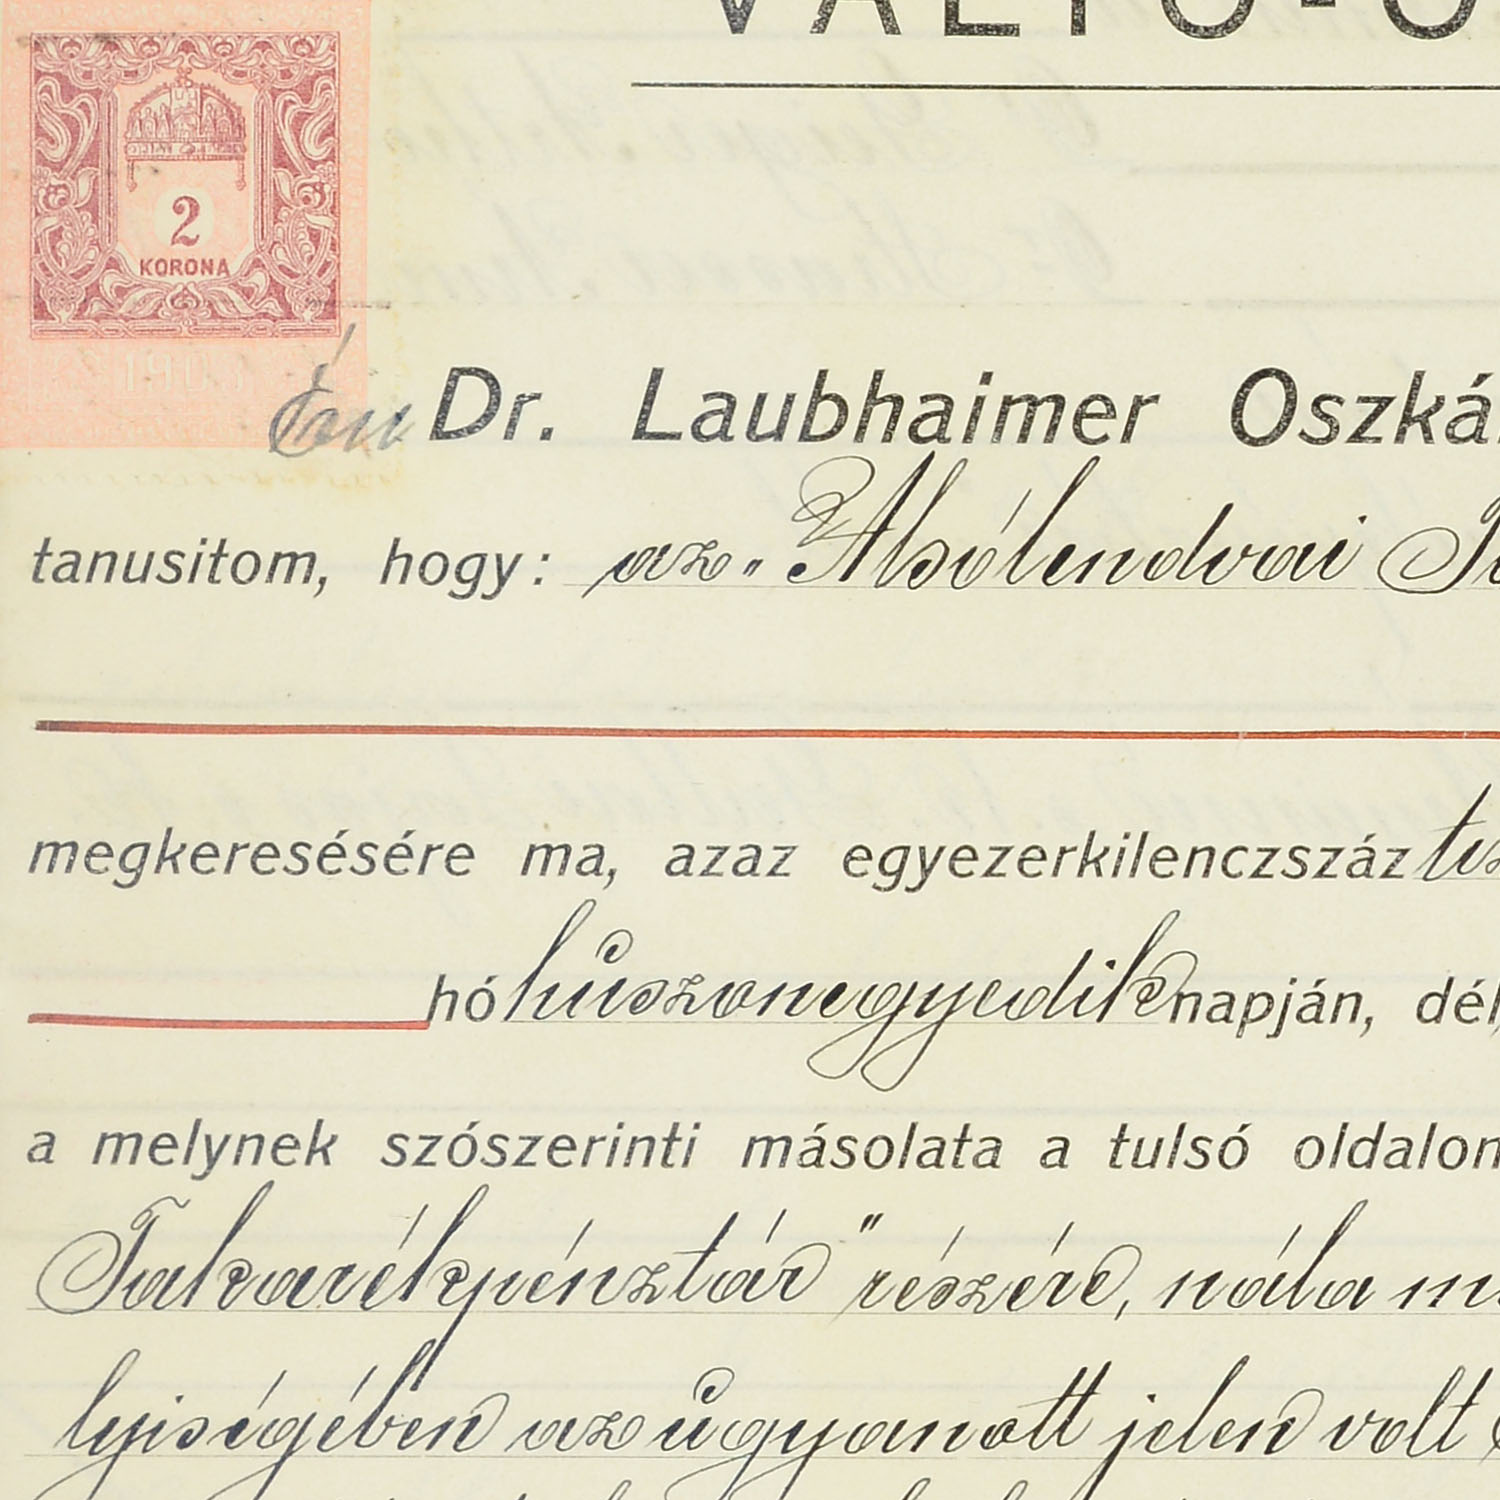 VÁLTÓ-Ó
2
KORONA
Én Dr. Laubhaimer Oszká
tanusitom, hogy: az „Alsólendvai
megkeresésére ma, azaz egyezerkilenczszáz
hó huszonegyedik napján, dél
a melynek szószerinti másolata a tulsó oldalon
Takarékpénztár" részére, nála
lyiségében az ugyanott jelen volt